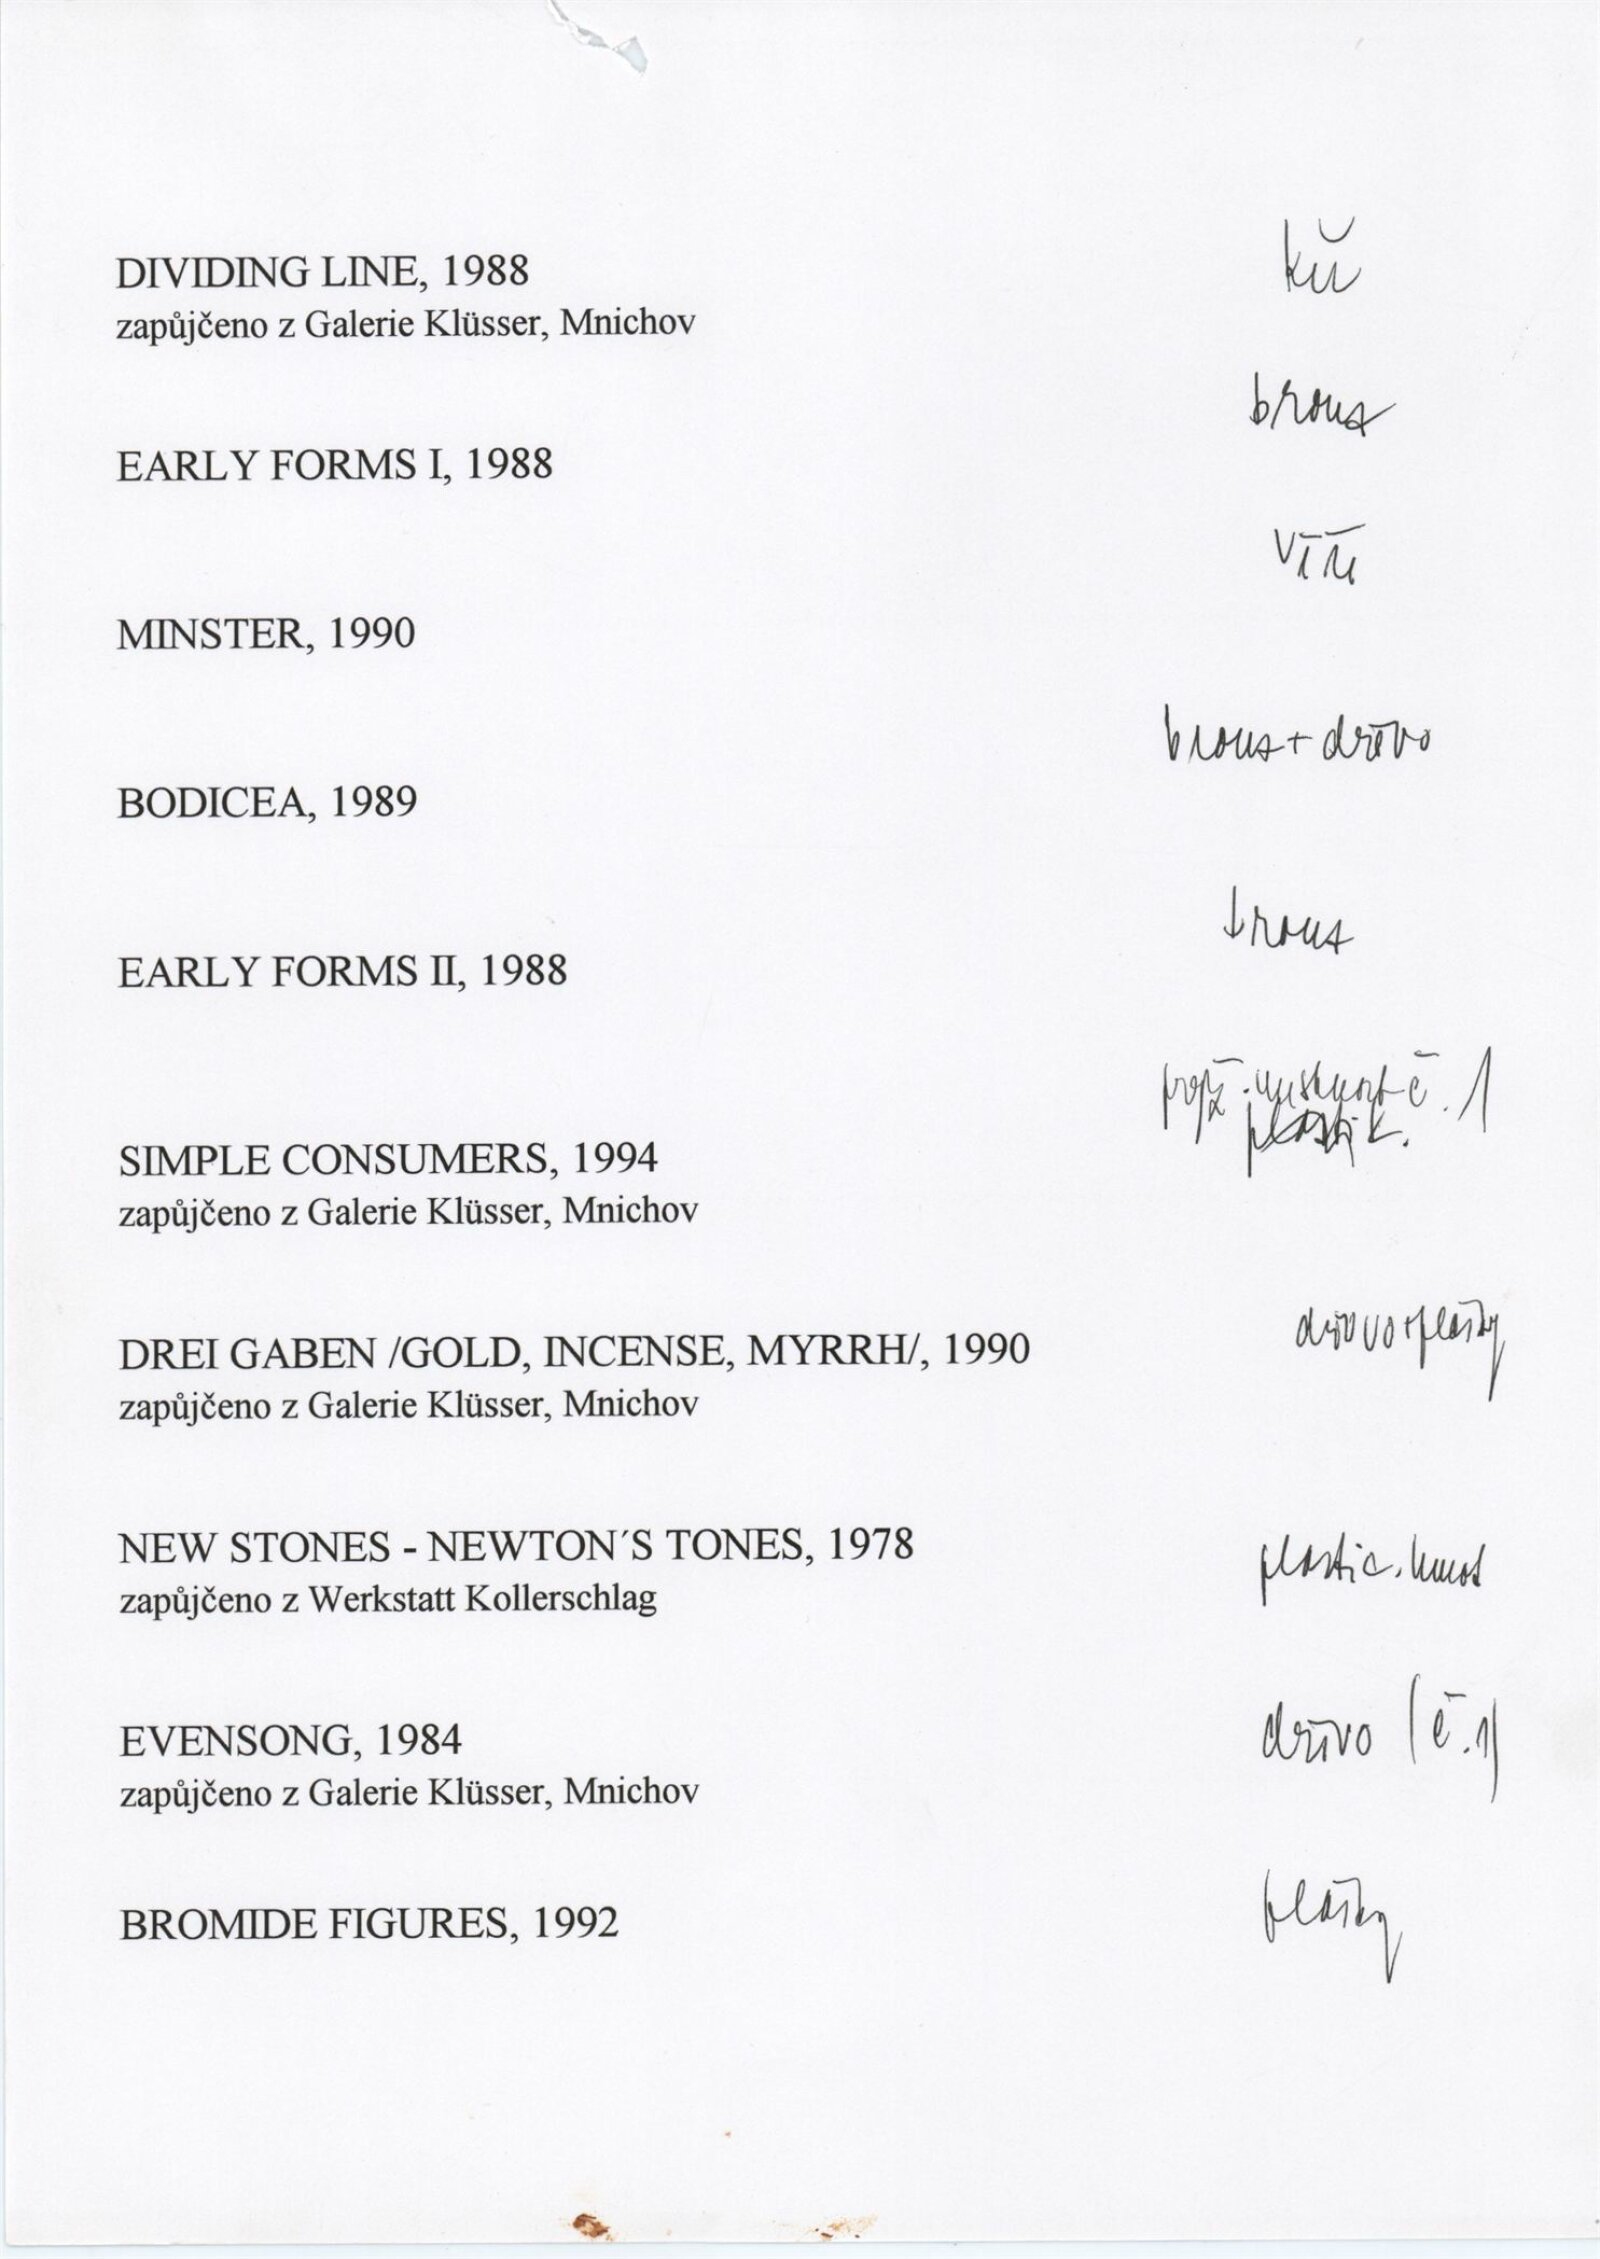 DIVIDING LINE, 1988
zapůjčeno z Galerie Klüsser, Mnichov
bronz
EARLY FORMS I, 1988
MINSTER, 1990
bronz + dřevo
BODICEA, 1989
bronz
EARLY FORMS II, 1988
č. 1
plastik.
SIMPLE CONSUMERS, 1994
zapůjčeno z Galerie Klüsser, Mnichov
dřevo + plasty
DREI GABEN /GOLD, INCENSE, MYRRH/, 1990
zapůjčeno z Galerie Klüsser, Mnichov
NEW STONES - NEWTON´S TONES, 1978
plastic. hmot
zapůjčeno z Werkstatt Kollerschlag
EVENSONG, 1984
dřevo (č. 1)
zapůjčeno z Galerie Klüsser, Mnichov
plasty
BROMIDE FIGURES, 1992